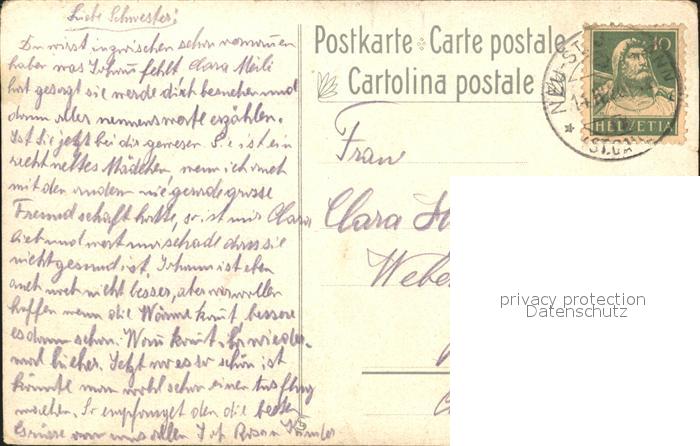 Liebe Schwester!
Du wirst inzwischen schon vernommen
haben was Johann fehlt Clara Meili
hat gesagt sie werde dich besuchen und
dann alles nennenswerte erzählen.
Ist Sie jetzt bei dir gewesen. Sie ist ein
recht nettes Mädchen, wenn ich auch
mit den andern nie gerade grosse
Freundschaft hatte, so ist mir Clara
lieb und nur schade dass sie
nicht gesund ist. Johann ist eben
auch noch nicht besser, aber wir wollen
hoffen wenn die Wärme kommt bessere
es dann schon. Wann kommt ihr wieder
mal hieher. Jetzt wo es so schön ist
könnte man wohl schon einen Ausflug
machen. So empfanget den die besten
Grüsse von uns allen Rosa
Postkarte Carte postale
Cartolina postale
10
HELVETIA
NEU ST.
(ST.GA
Frau
Clara
Weber
privacy protection
Datenschutz